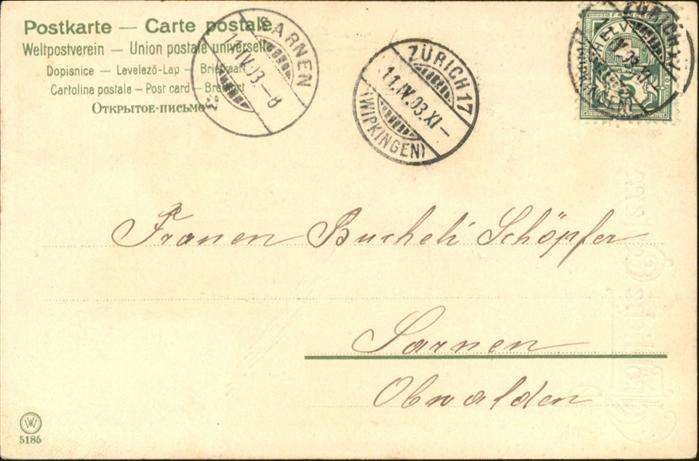 Postkarte — Carte postale
Weltpostverein — Union postale universelle
Dopisnice — Levelező-Lap — Briefkaart
Cartolina postale — Post card — Brefkort
Открытое-письмо
SARNEN
11.IV.03.-8
ZÜRICH 17
11.IV.03.XI-
(WIPKINGEN)
ZÜRICH 17
HELVETIA
5
Frauen Bucheli Schöpfer
Sarnen
Obwalden
W
5185